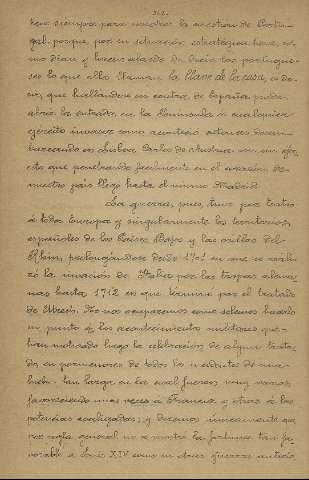 tuvo siempre para nosotros la cuestion de Portu-
gal, porque por su situacion estratégica hace, co-
mo dicen y hacen alarde de decir los portugue-
ses lo que ellos llaman la llave de la casa, es de-
cir, que hallándose en contra de España puede
abrir la entrada en la Península á cualquier
ejército invasor como aconteció entonces desem-
barcando en Lisboa Carlos de Austria con un ejér-
cito que penetrando facilmente en el corazon de
nuestro pais llegó hasta el mismo Madrid.
La guerra, pues, tuvo por teatro
á toda Europa y singularmente los territorios
españoles de los Países Bajos y las orillas del
Rhin, prolongándose desde 1701 en que se reali-
zó la invasión de Italia por las tropas alema-
nas hasta 1712 en que terminó por el tratado
de Utrech. No nos ocuparemos como solemos hacerlo
en punto á los acontecimientos militares que
han motivado luego la celebracion de algun trata-
do, en pormenores de todos los incidentes de una
lucha tan larga en la cual fueron muy varios,
favoreciendo unas veces á Francia y otras á las
potencias coaligadas; y diremos unicamente que
por regla general no se mostró la fortuna tan fa-
vorable a Luis XIV como en otras guerras anterio